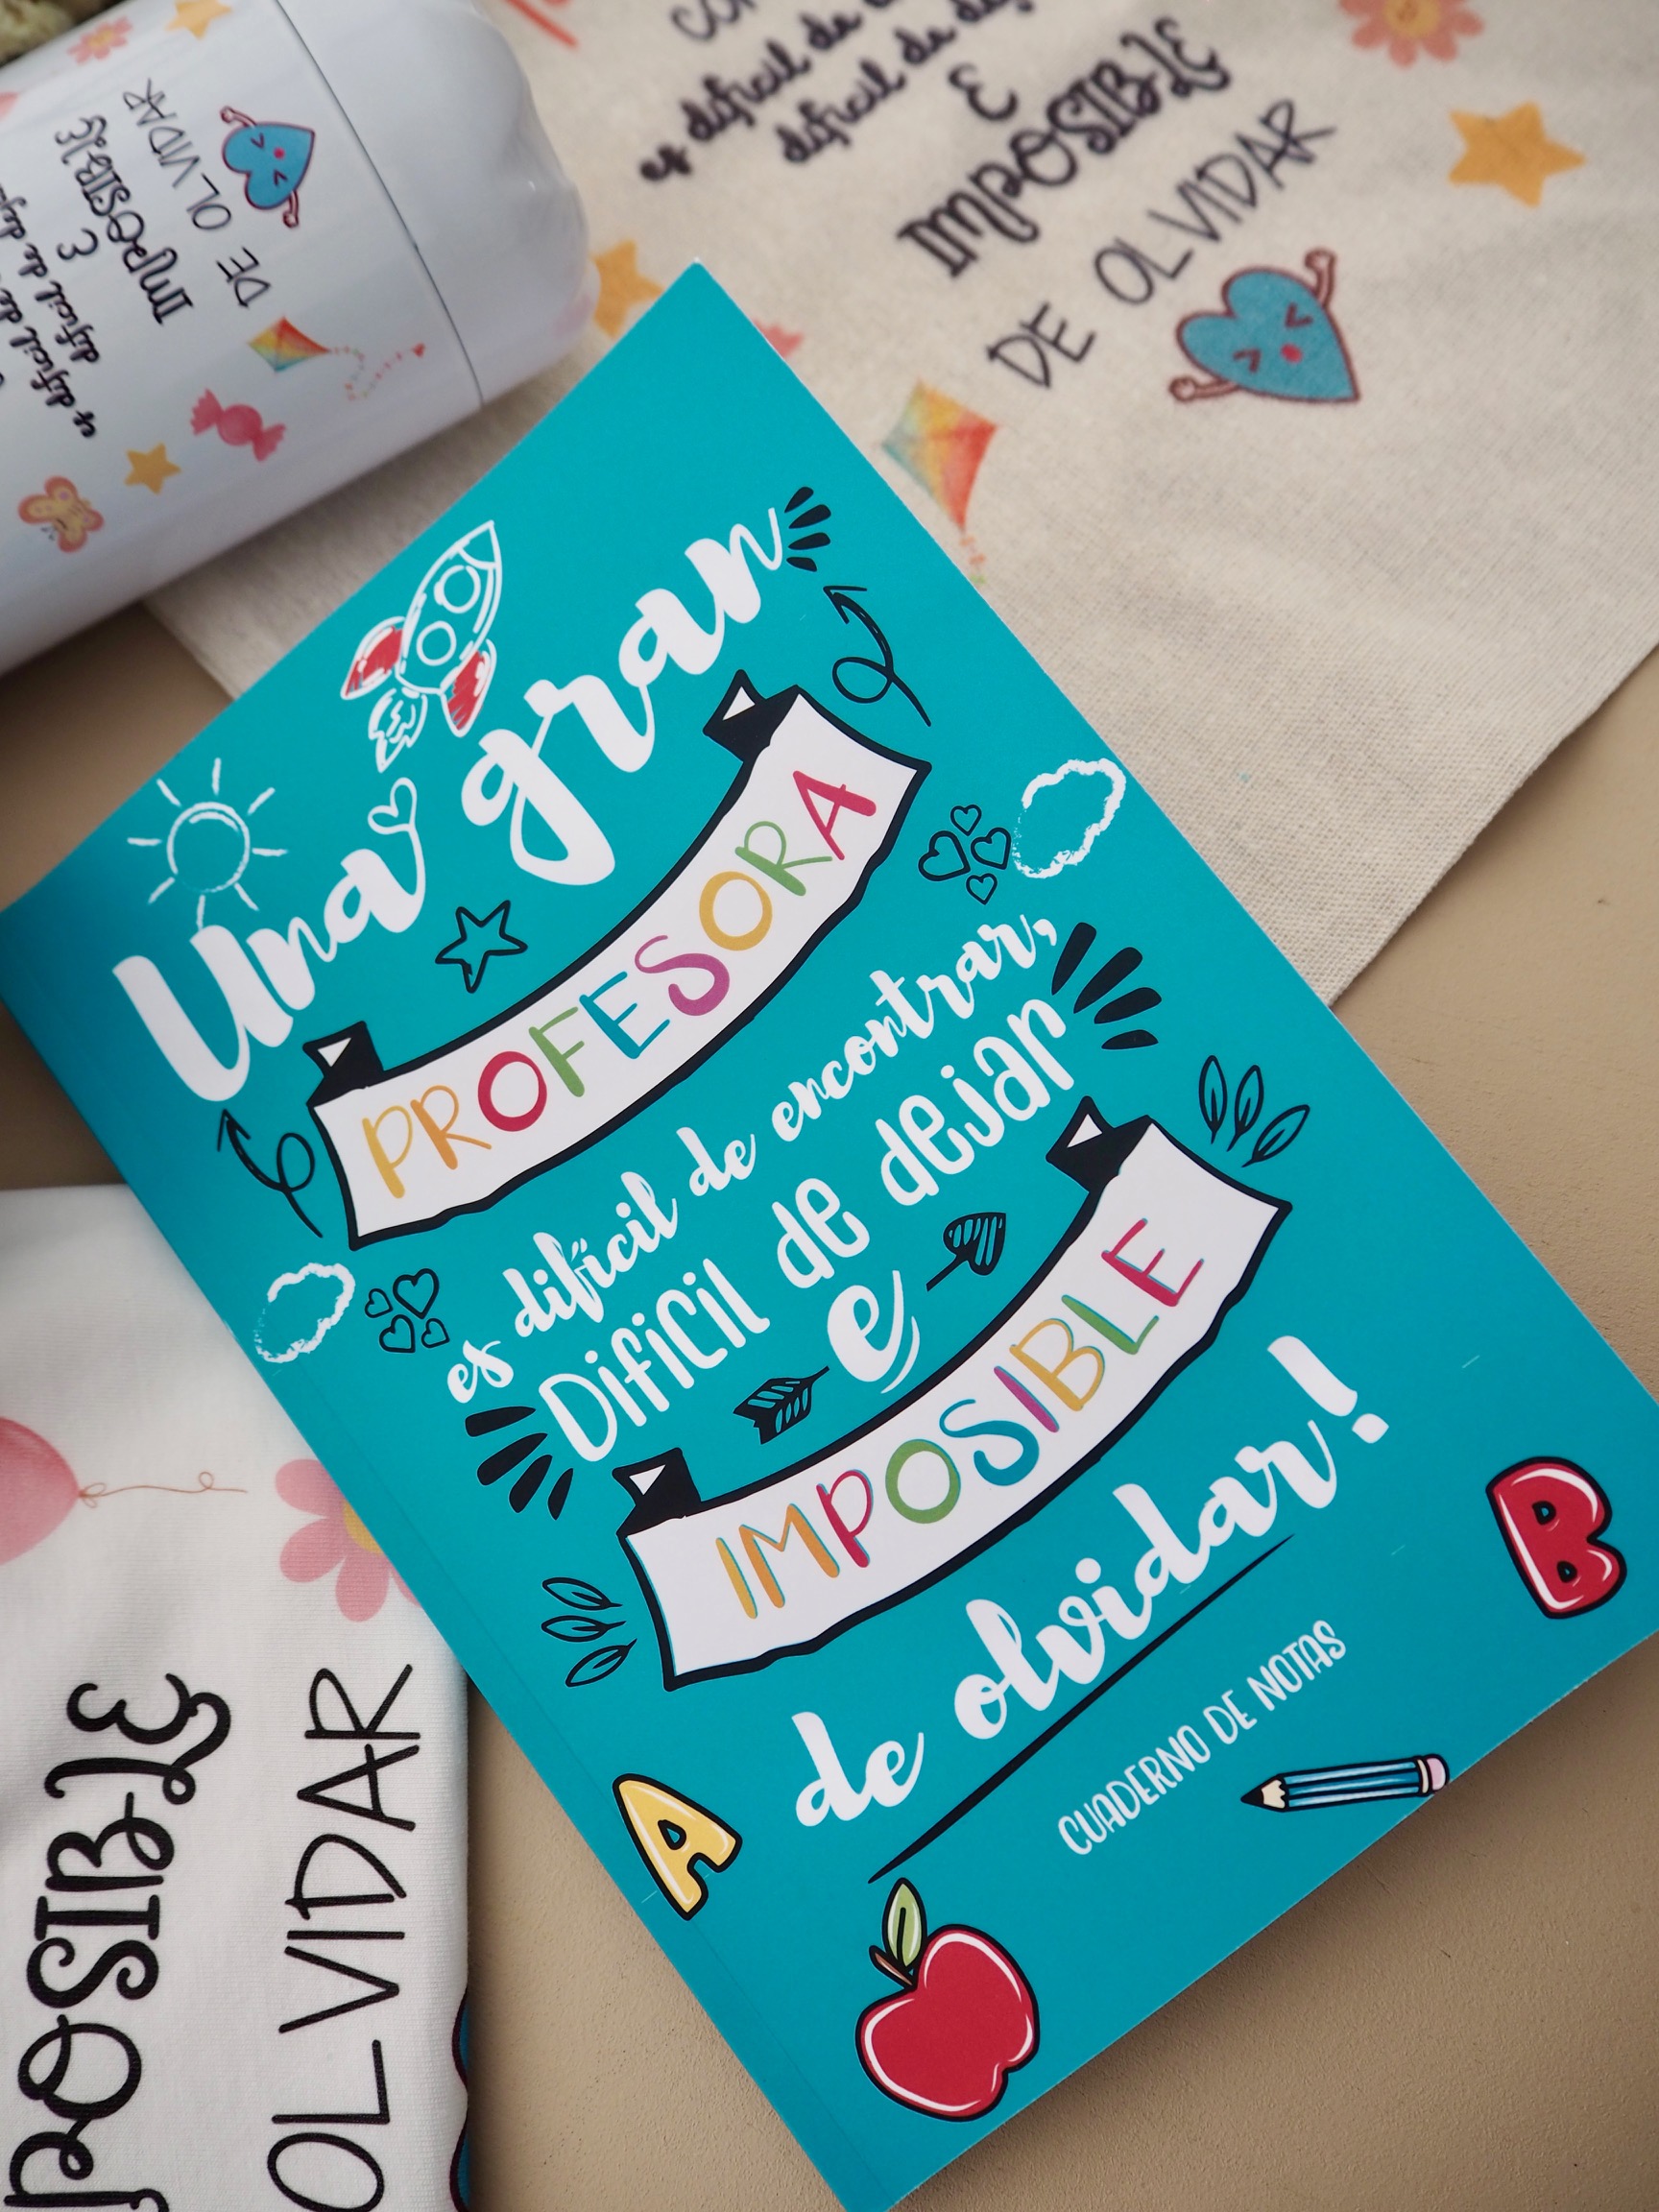 DE OLVIDAR
IMPOSIBLE
E
difícil de
es difícil de
es difícil de
difícil de
E
IMPOSIBLE
DE OLVIDAR
Una gran
PROFESORA
es difícil de encontrar,
Dificil de dejar
e
IMPOSIBLE
de olvidar!
CUADERNO DE NOTAS
A
B
POSIBLE
OLVIDAR